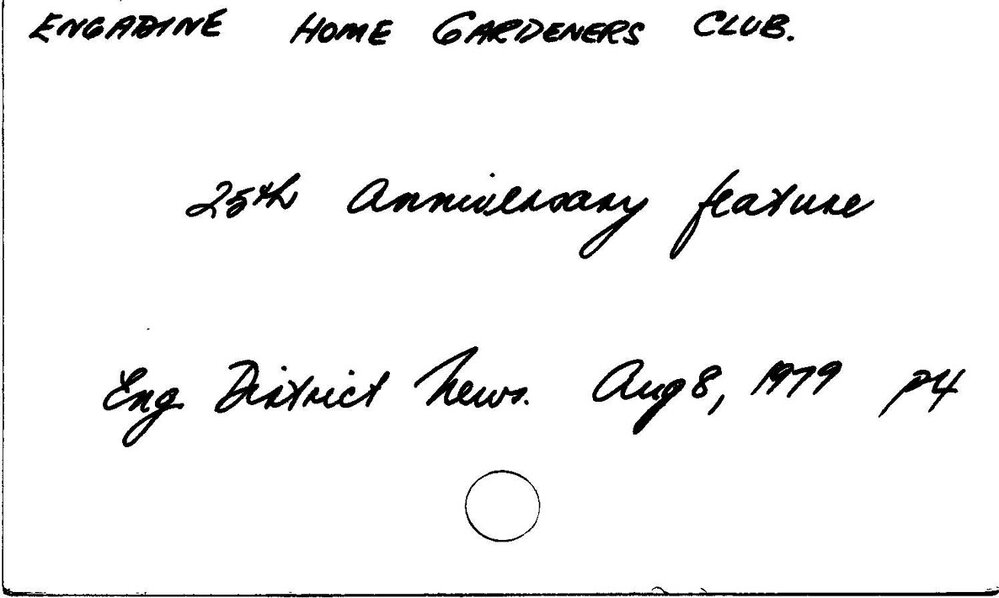 ENGADINE HOME GARDENERS CLUB.
25th Anniversary feature
Eng District News. Aug 8, 1979 p4